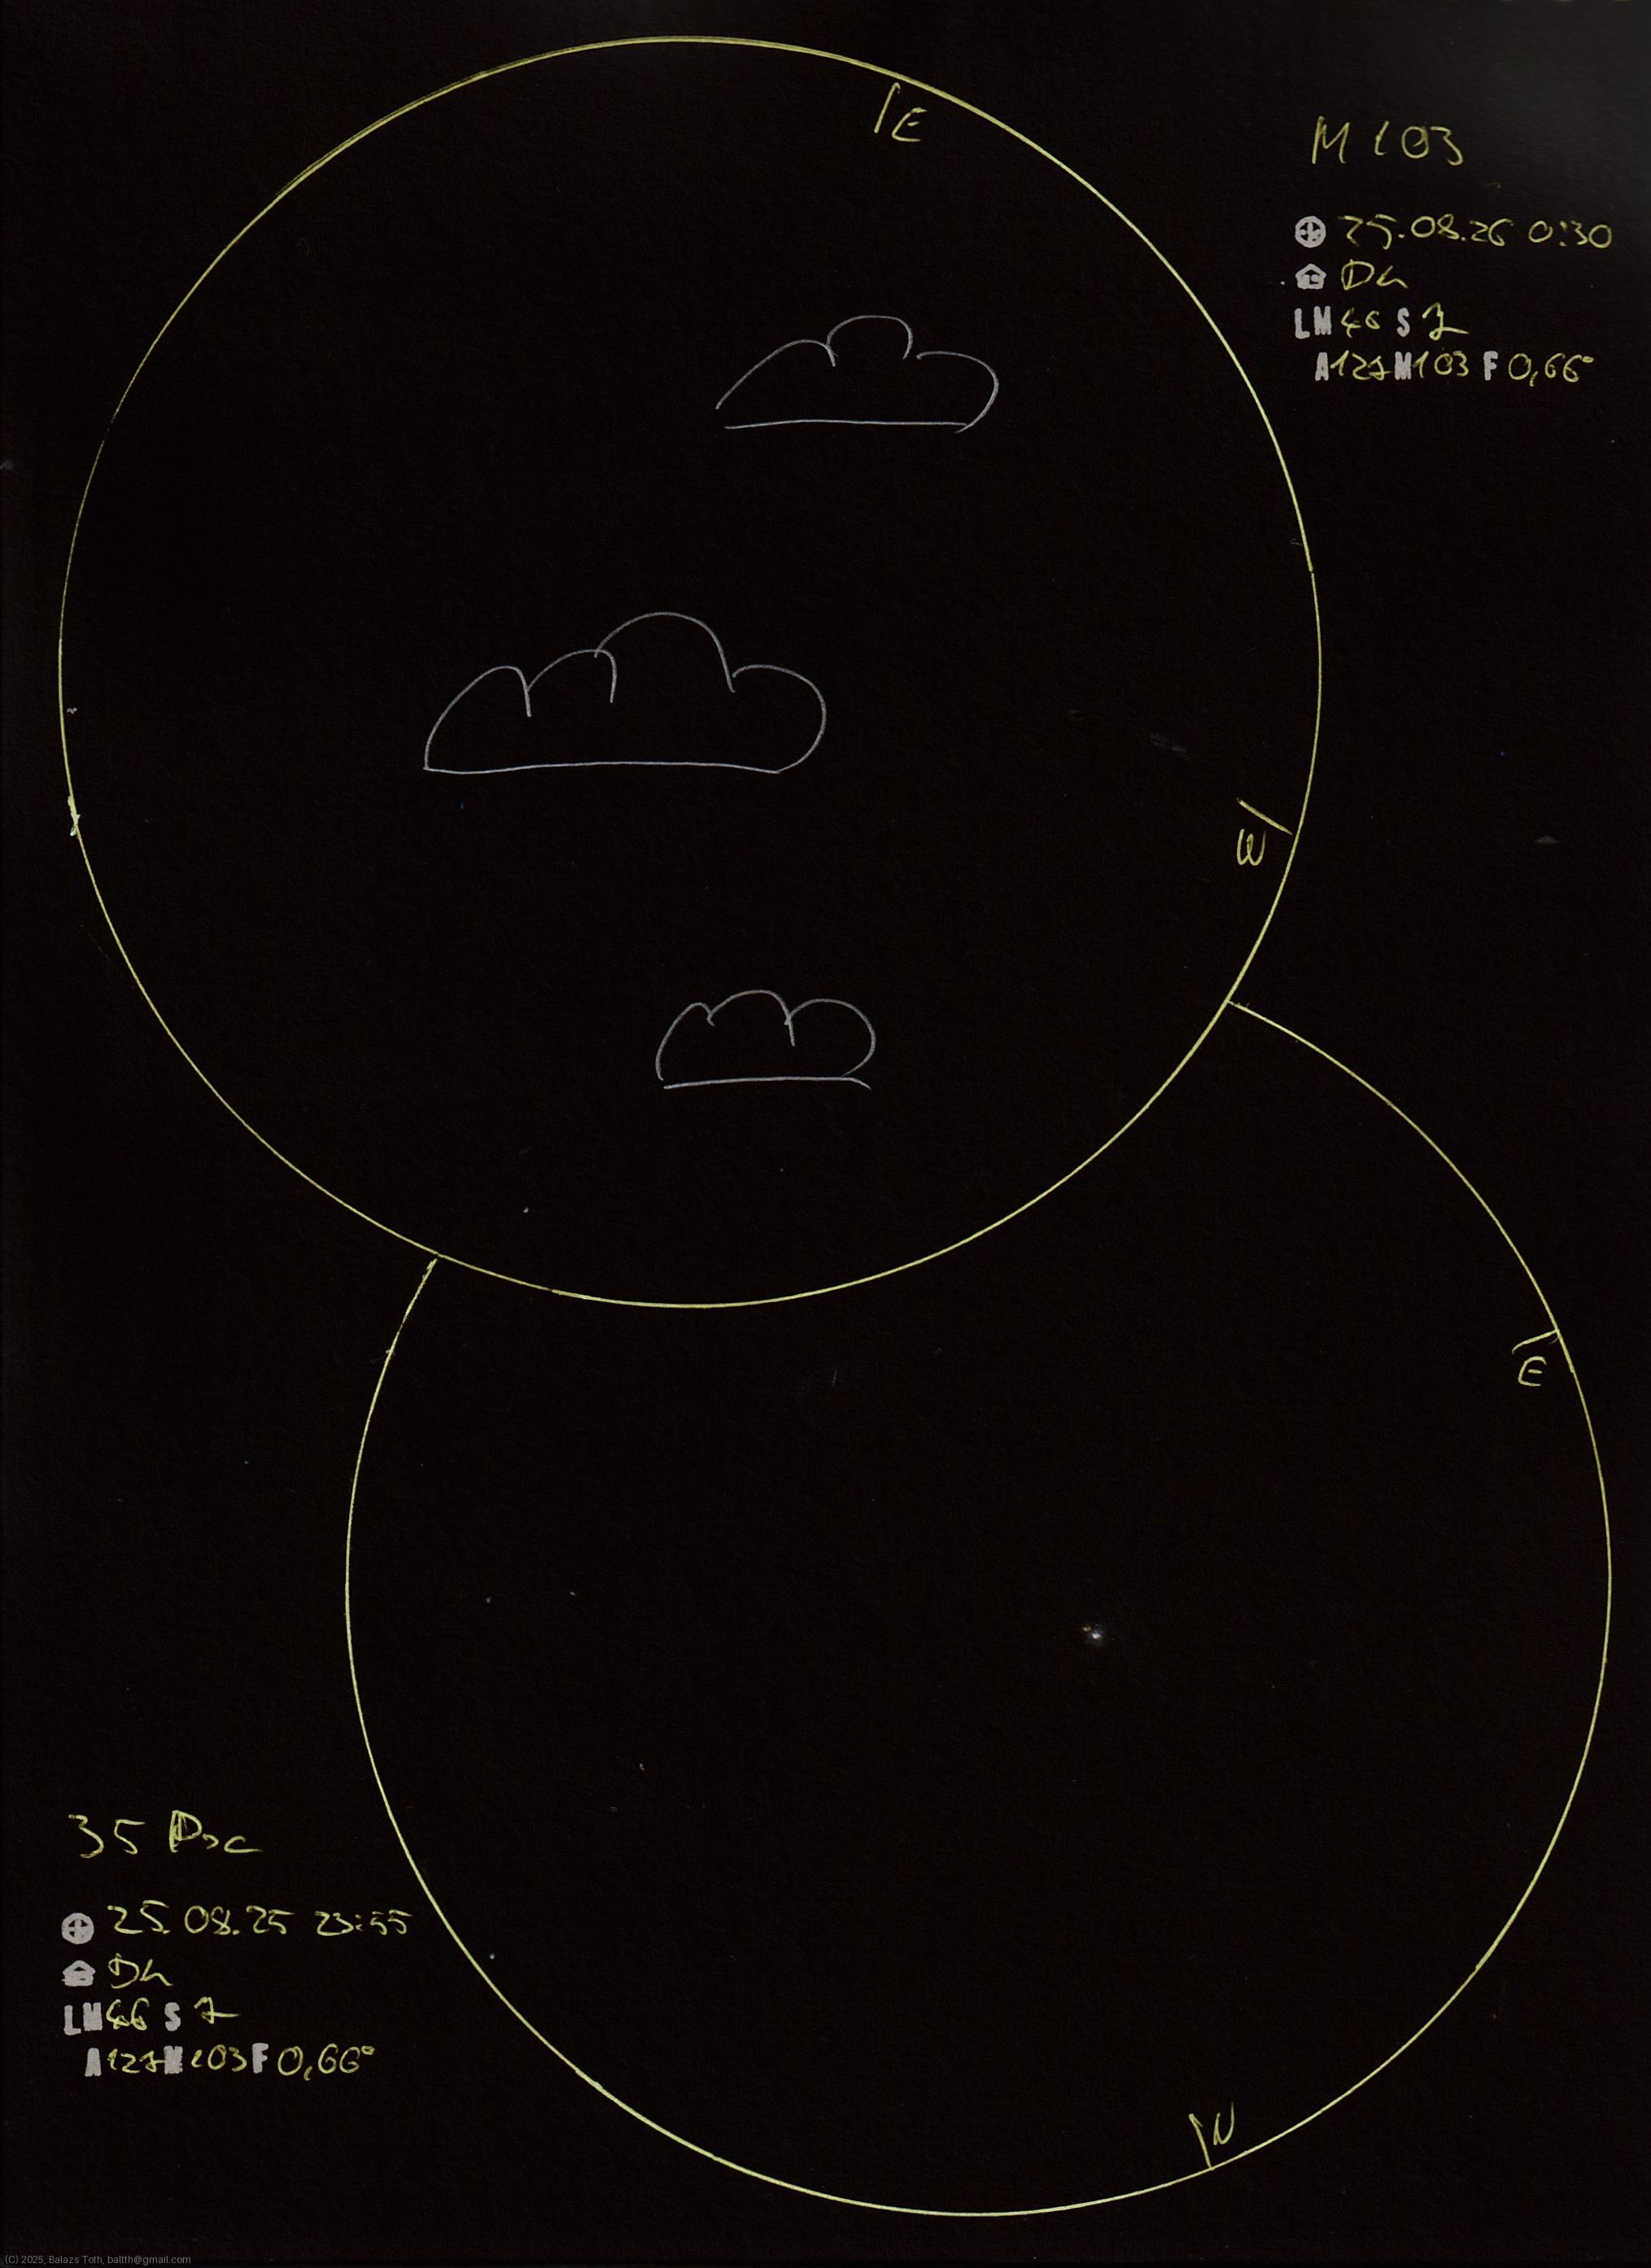 E
M 103
25.08.26 0:30
Dh
LM 46 S 7
A 127 M 103 F 0,66°
W
E
35 Psc
25.08.25 23:55
Dh
LM 46 S 7
A 127 M 103 F 0,66°
N
(C) 2025, Balazs Toth, baltth@gmail.com